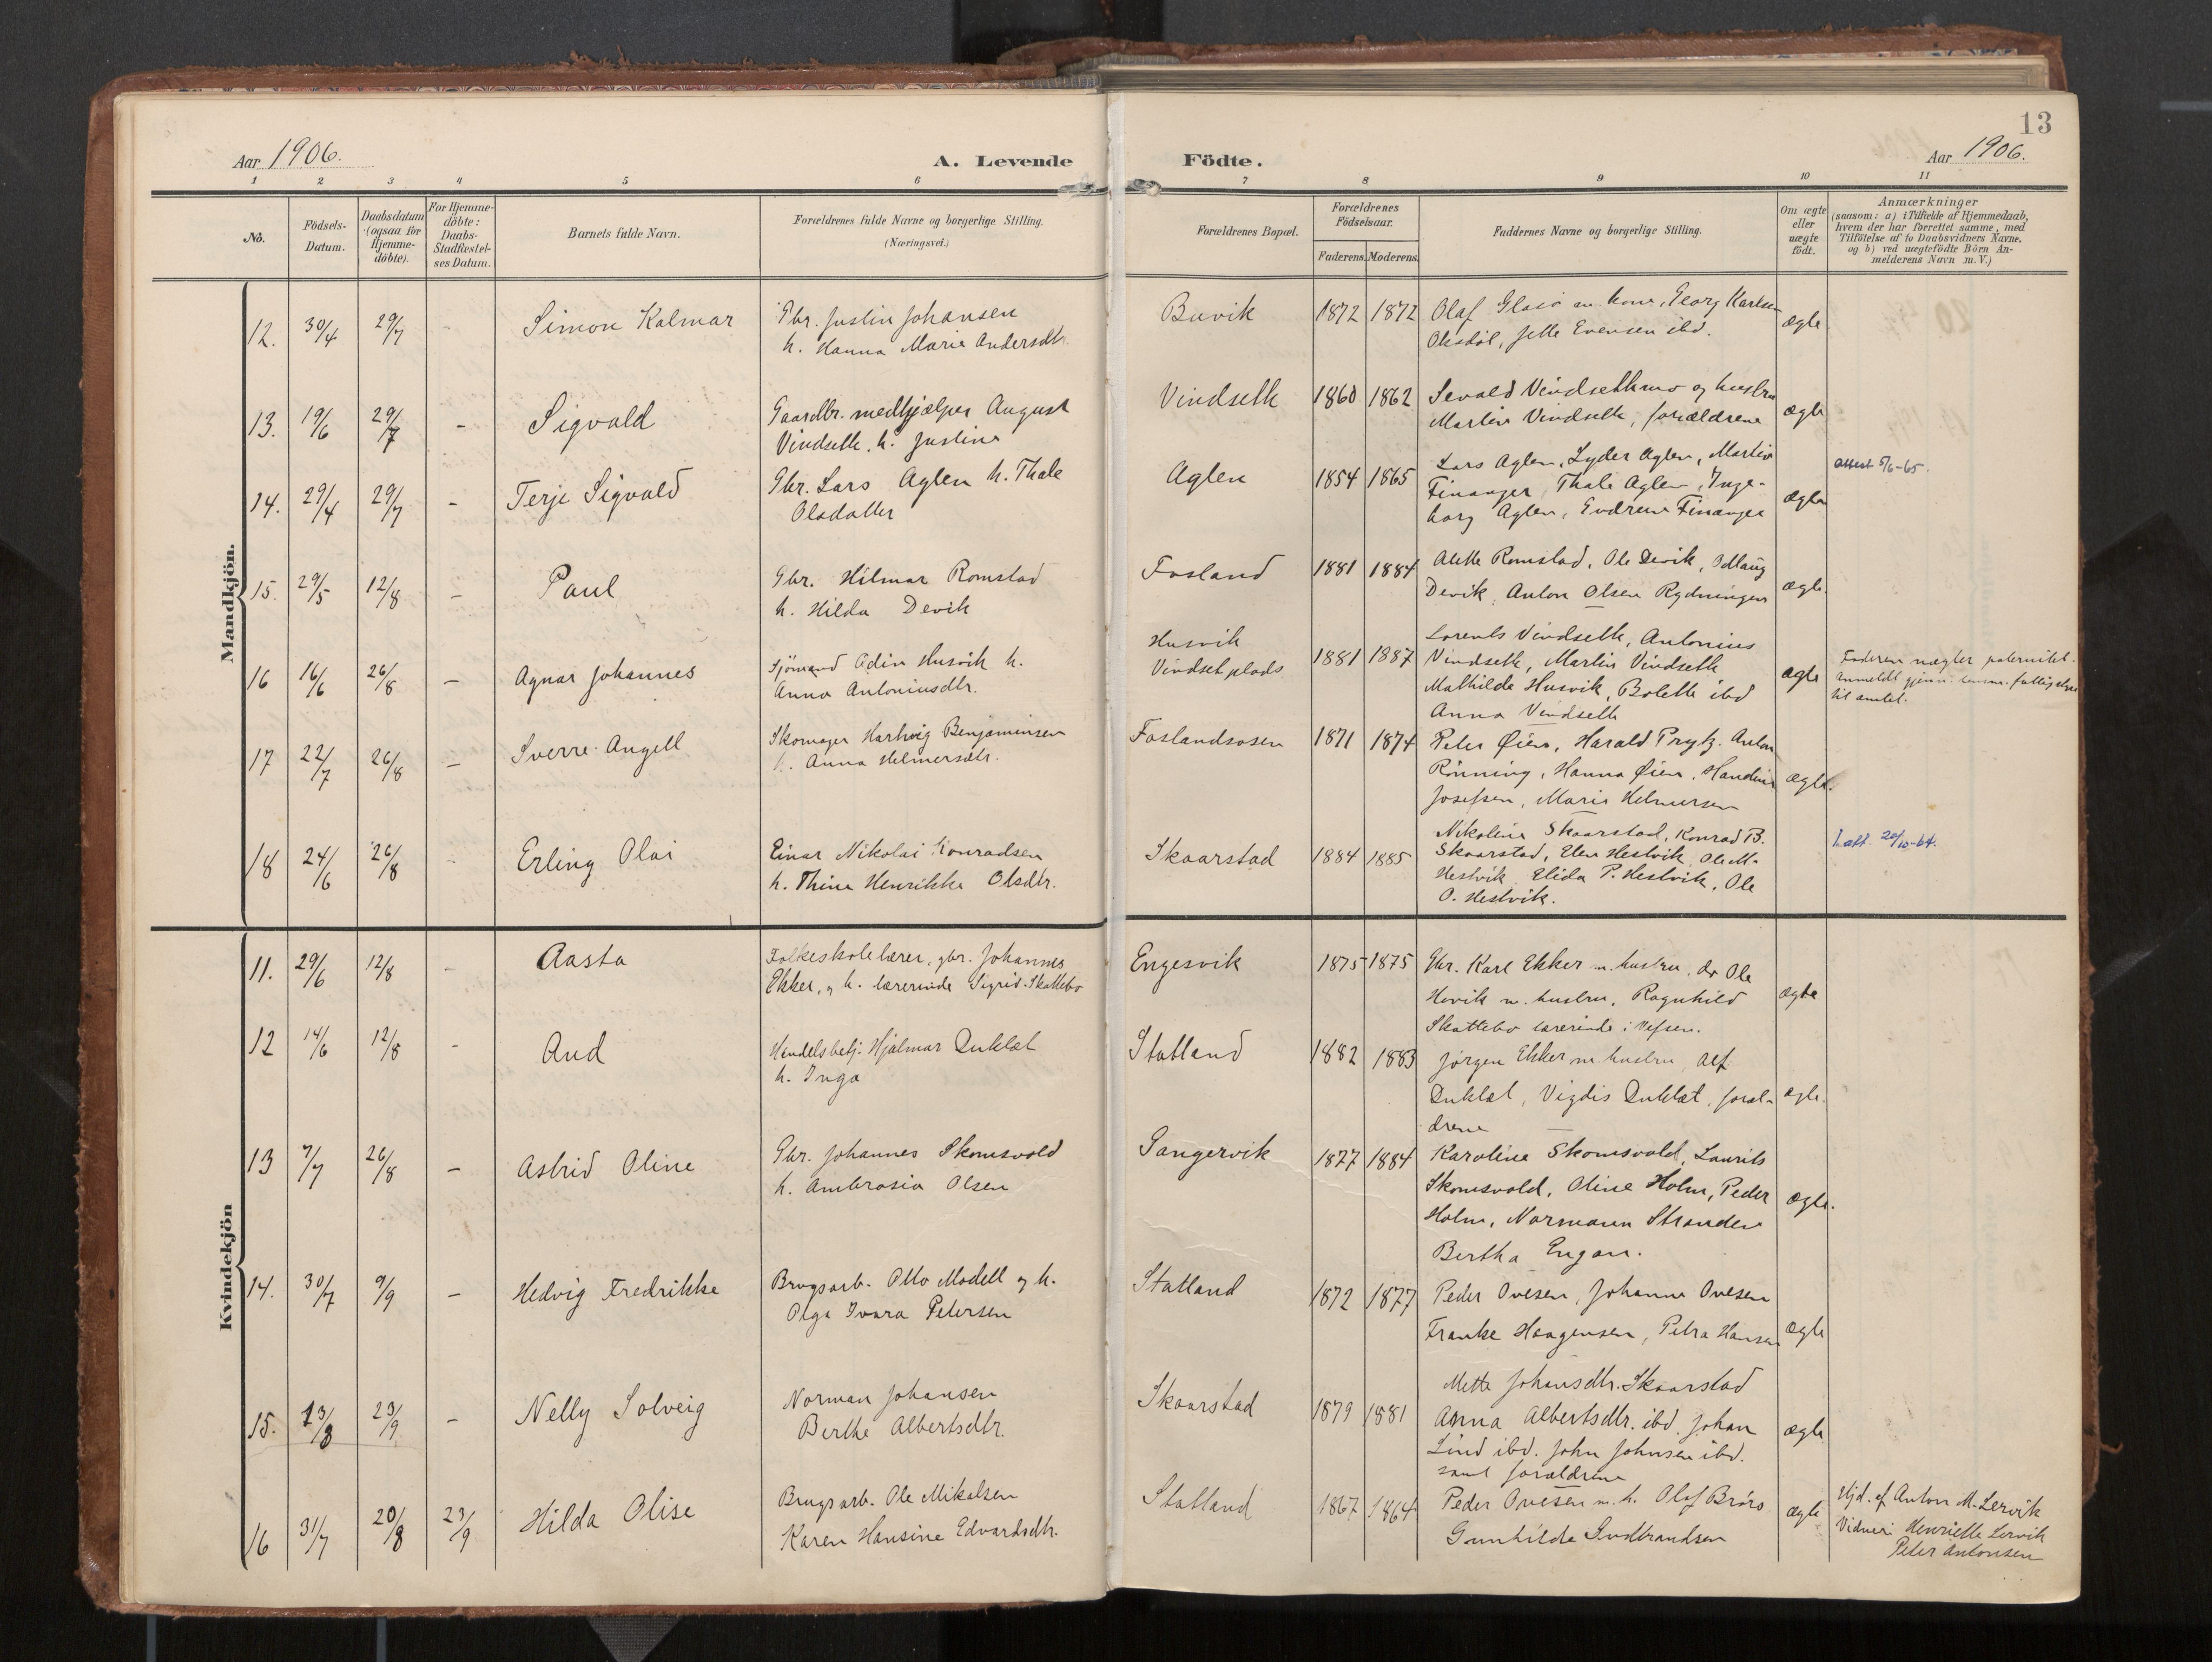 13
Aar 1906.
A. Levende Födte.
Aar 1906.
1 2 3 4 5 6 7 8 9 10 11
No.
Födsels-Datum.
Daabsdatum (ogsaa for Hjemme-döbte).
For Hjemme-döbte: Daabs-Stadfæstel-ses Datum.
Barnets fulde Navn.
Forældrenes fulde Navne og borgerlige Stilling.
(Næringsvei.)
Forældrenes Bopæl.
Forældrenes Födselsaar.
Faderens. Moderens.
Faddernes Navne og borgerlige Stilling.
Om ægte eller uægte födt.
Anmærkninger
(saasom: a) i Tilfælde af Hjemmedaab,
hvem der har forrettet samme, med
Tilföielse af to Daabsvidners Navne.
og b) ved uægtefödte Börn An-
melderens Navn m. V.)
Mandkjön.
12. 30/4 29/7 - Simon Kalmar
Gbr. Justin Johansen
h. Hanna Marie Andersdtr.
Buvik 1872 1872
Olaf Glasö m. kone, Georg Karlsen
Olsdöl, Jette Evensen ibd.
ægte
13. 19/6 29/7 - Sigvald
Gaardbr. medhjælper August
Vindseth. h. Justine
Vindseth 1860 1862
Sevald Vindsethmo og hustru
Martin Vindseth, forældrene
ægte
14. 29/4 29/7 - Terje Sigvald
Gbr. Lars Aglen h. Thale
Olsdatter
Aglen 1854 1865
Lars Aglen, Lyder Aglen, Martin
Finanger, Thale Aglen, Inge-
borg Aglen, Endrine Finanger
ægte
attest 5/6-65.
15. 29/5 12/8 - Paul
Gbr. Hilmar Romstad
h. Hilda Devik
Fosland 1881 1884
Alette Romstad, Ole Devik, Odlaug
Devik, Anton Olsen Rydningen
ægte.
16 16/6 26/8 - Agnar Johannes
Sjömand Odin Husvik h.
Anna Antoniusdtr.
Husvik
Vindsetplads
1881 1887
Lorents Vindseth, Antonius
Vindseth, Martin Vindseth
Mathilde Husvik, Bolette ibd
Anna Vindseth
ægte
Faderen nægter paternitet.
Anmeldt til amtet.
17 22/7 26/8 - Sverre Angell
Skomager Hartvig Benjaminsen
h. Anna Helmersdtr.
Foslandsosen 1871 1874
Peter Øien, Harald Prytz. Anton
Rönning, Hanna Øien, Handine
Josefsen, Marie Helmersen
ægte.
18 24/6 26/8 - Erling Olai
Einar Nikolai Konradsen
h. Thina Henrikke Olsdtr.
Skaarstad 1884 1885
Nikoline Skaarstad, Konrad B.
Skaarstad, Elen Hestvik, Ole M.
Hestvik, Elida P. Hestvik, Ole
O. Hestvik.
att. 20/10-64.
Kvindekjön
11. 29/6 12/8 - Aasta
Folkeskolelærer, gbr. Johannes
Ekker, og h. lærerinde Sigrid Skattebo
Engesvik 1875 1875
Gbr. Karl Ekker m. hustru. do Ole
Hovik m. hustru, Ragnhild
Skattebo lærerinde i Vefsen.
ægte
12 14/6 12/8 - Aud
Handelsbetj. Hjalmar Duklæt
h. Inga
Statland 1882 1883
Jørgen Ekker m. hustru, Alf
Duklæt, Vigdis Duklæt, foræl-
drene
ægte.
13 7/7 26/8 - Astrid Oline
Gbr. Johannes Skomsvold
h. Ambrosia Olsen
Sangervik 1877 1884
Karoline Skomsvold, Laurits
Skomsvold, Oline Holm, Peder
Holm, Normann Stranden
Bertha Engan.
ægte.
14. 30/7 9/9 - Hedvig Fredrikke
Brugsarb. Otto Modell og h.
Olga Ivara Petersen
Statland 1872 1877
Peder Ovesen, Johanne Ovesen
Frantze Haagensen, Petra Hansen
ægte
15. 13/8 23/9 - Nelly Solveig
Norman Johansen
Berthe Albertsdtr.
Skaarstad 1879 1881
Mette Johansdtr. Skaarstad
Anna Albertsdtr. ibd. Johan
Lind ibd. John Johnsen ibd.
samt forældrene
ægte
16 31/7 20/8 23/9 Hilda Olise
Brugsarb. Ole Mikalsen
Karen Hansine Edvardsdtr.
Statland 1867 1864
Peder Ovesen m. h. Olof Brörs
Gunhilde Gudbrandsen
ægte
Hjd. af Anton M. Lervik
Vidner: Henriette Lervik
Peter Antonsen